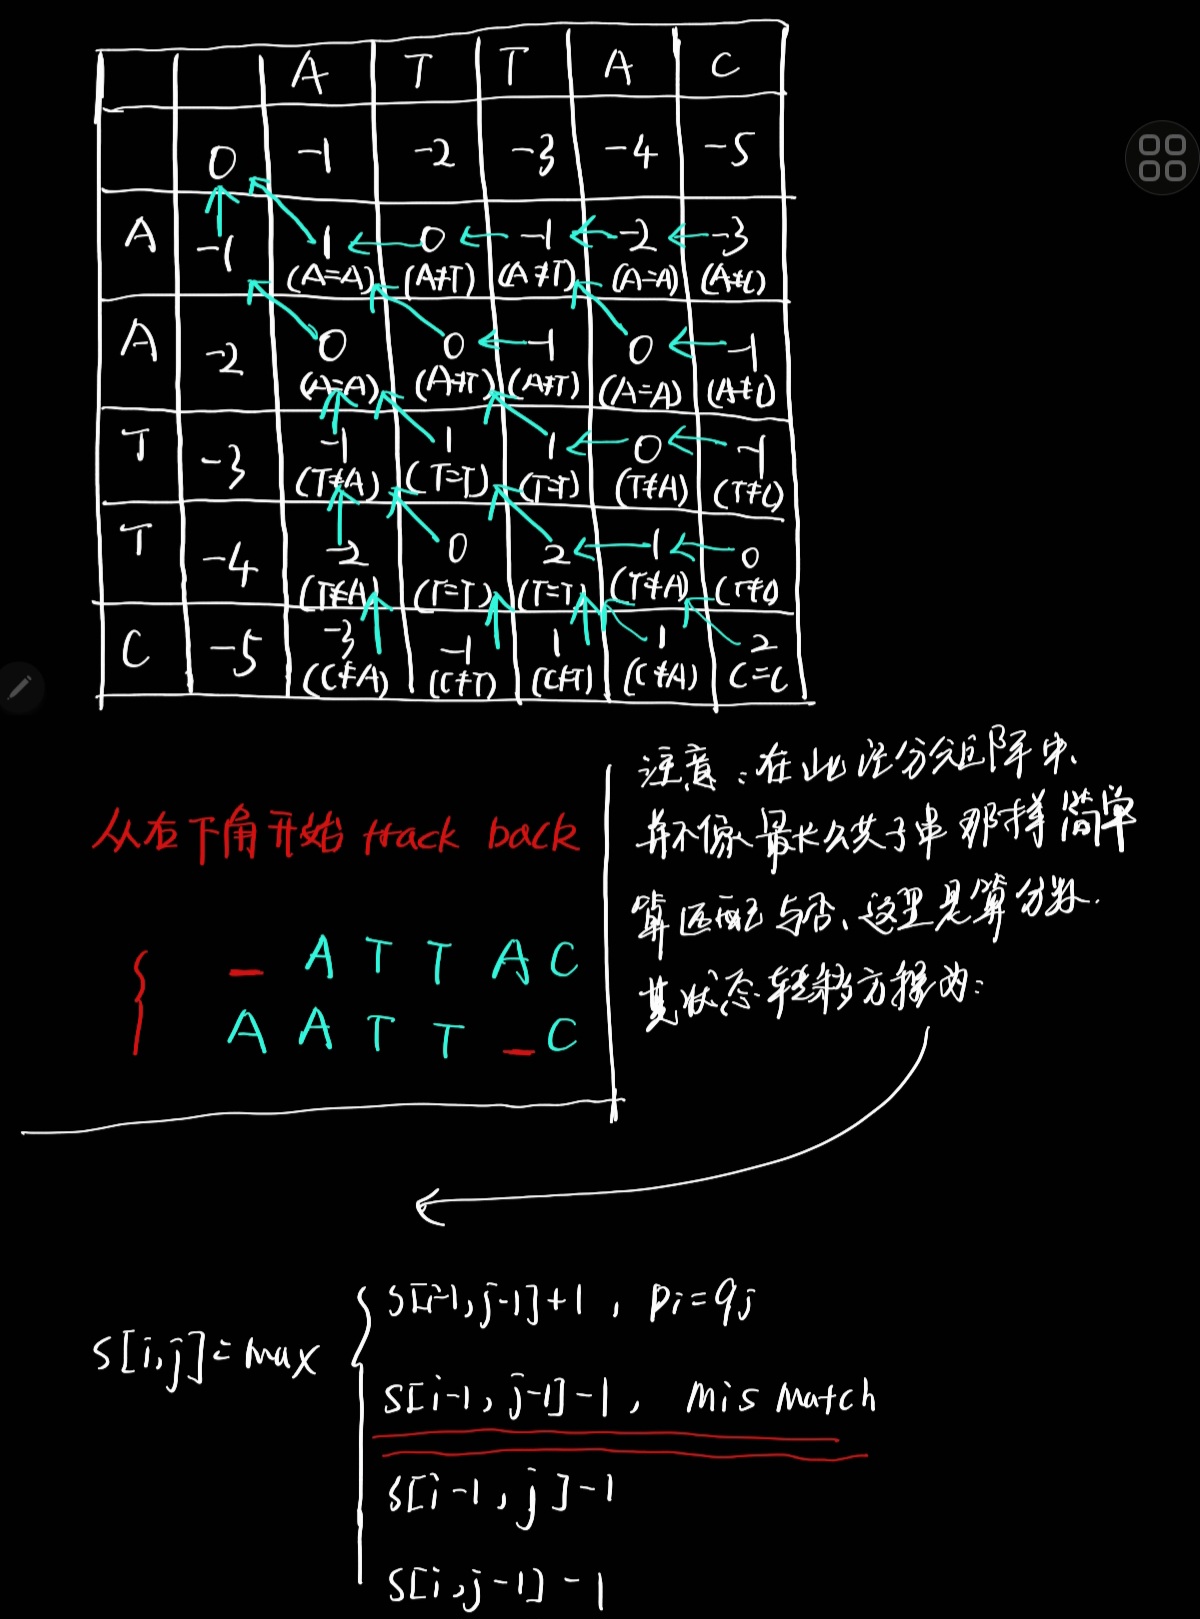 A T T A C
0 -1 -2 -3 -4 -5
A -1 1 0 -1 -2 -3
(A=A) (A≠T) (A≠T) (A=A) (A≠C)
A -2 0 0 -1 0 -1
(A=A) (A≠T) (A≠T) (A=A) (A≠C)
T -3 -1 1 1 0 -1
(T≠A) (T=T) (T=T) (T≠A) (T≠C)
T -4 -2 0 2 1 0
(T≠A) (T=T) (T=T) (T≠A) (T≠C)
C -5 -3 -1 1 1 2
(C≠A) (C≠T) (C≠T) (C≠A) C=C
从右下角开始 track back
_ A T T A C
A A T T _ C
注意：在此得分矩阵中、
并不像最长公共子串那样简单
算匹配与否、这里是算分数.
其状态转移方程为：
S[i,j]=max
S[i-1,j-1]+1, pi=qj
S[i-1,j-1]-1, mismatch
S[i-1,j]-1
S[i,j-1]-1